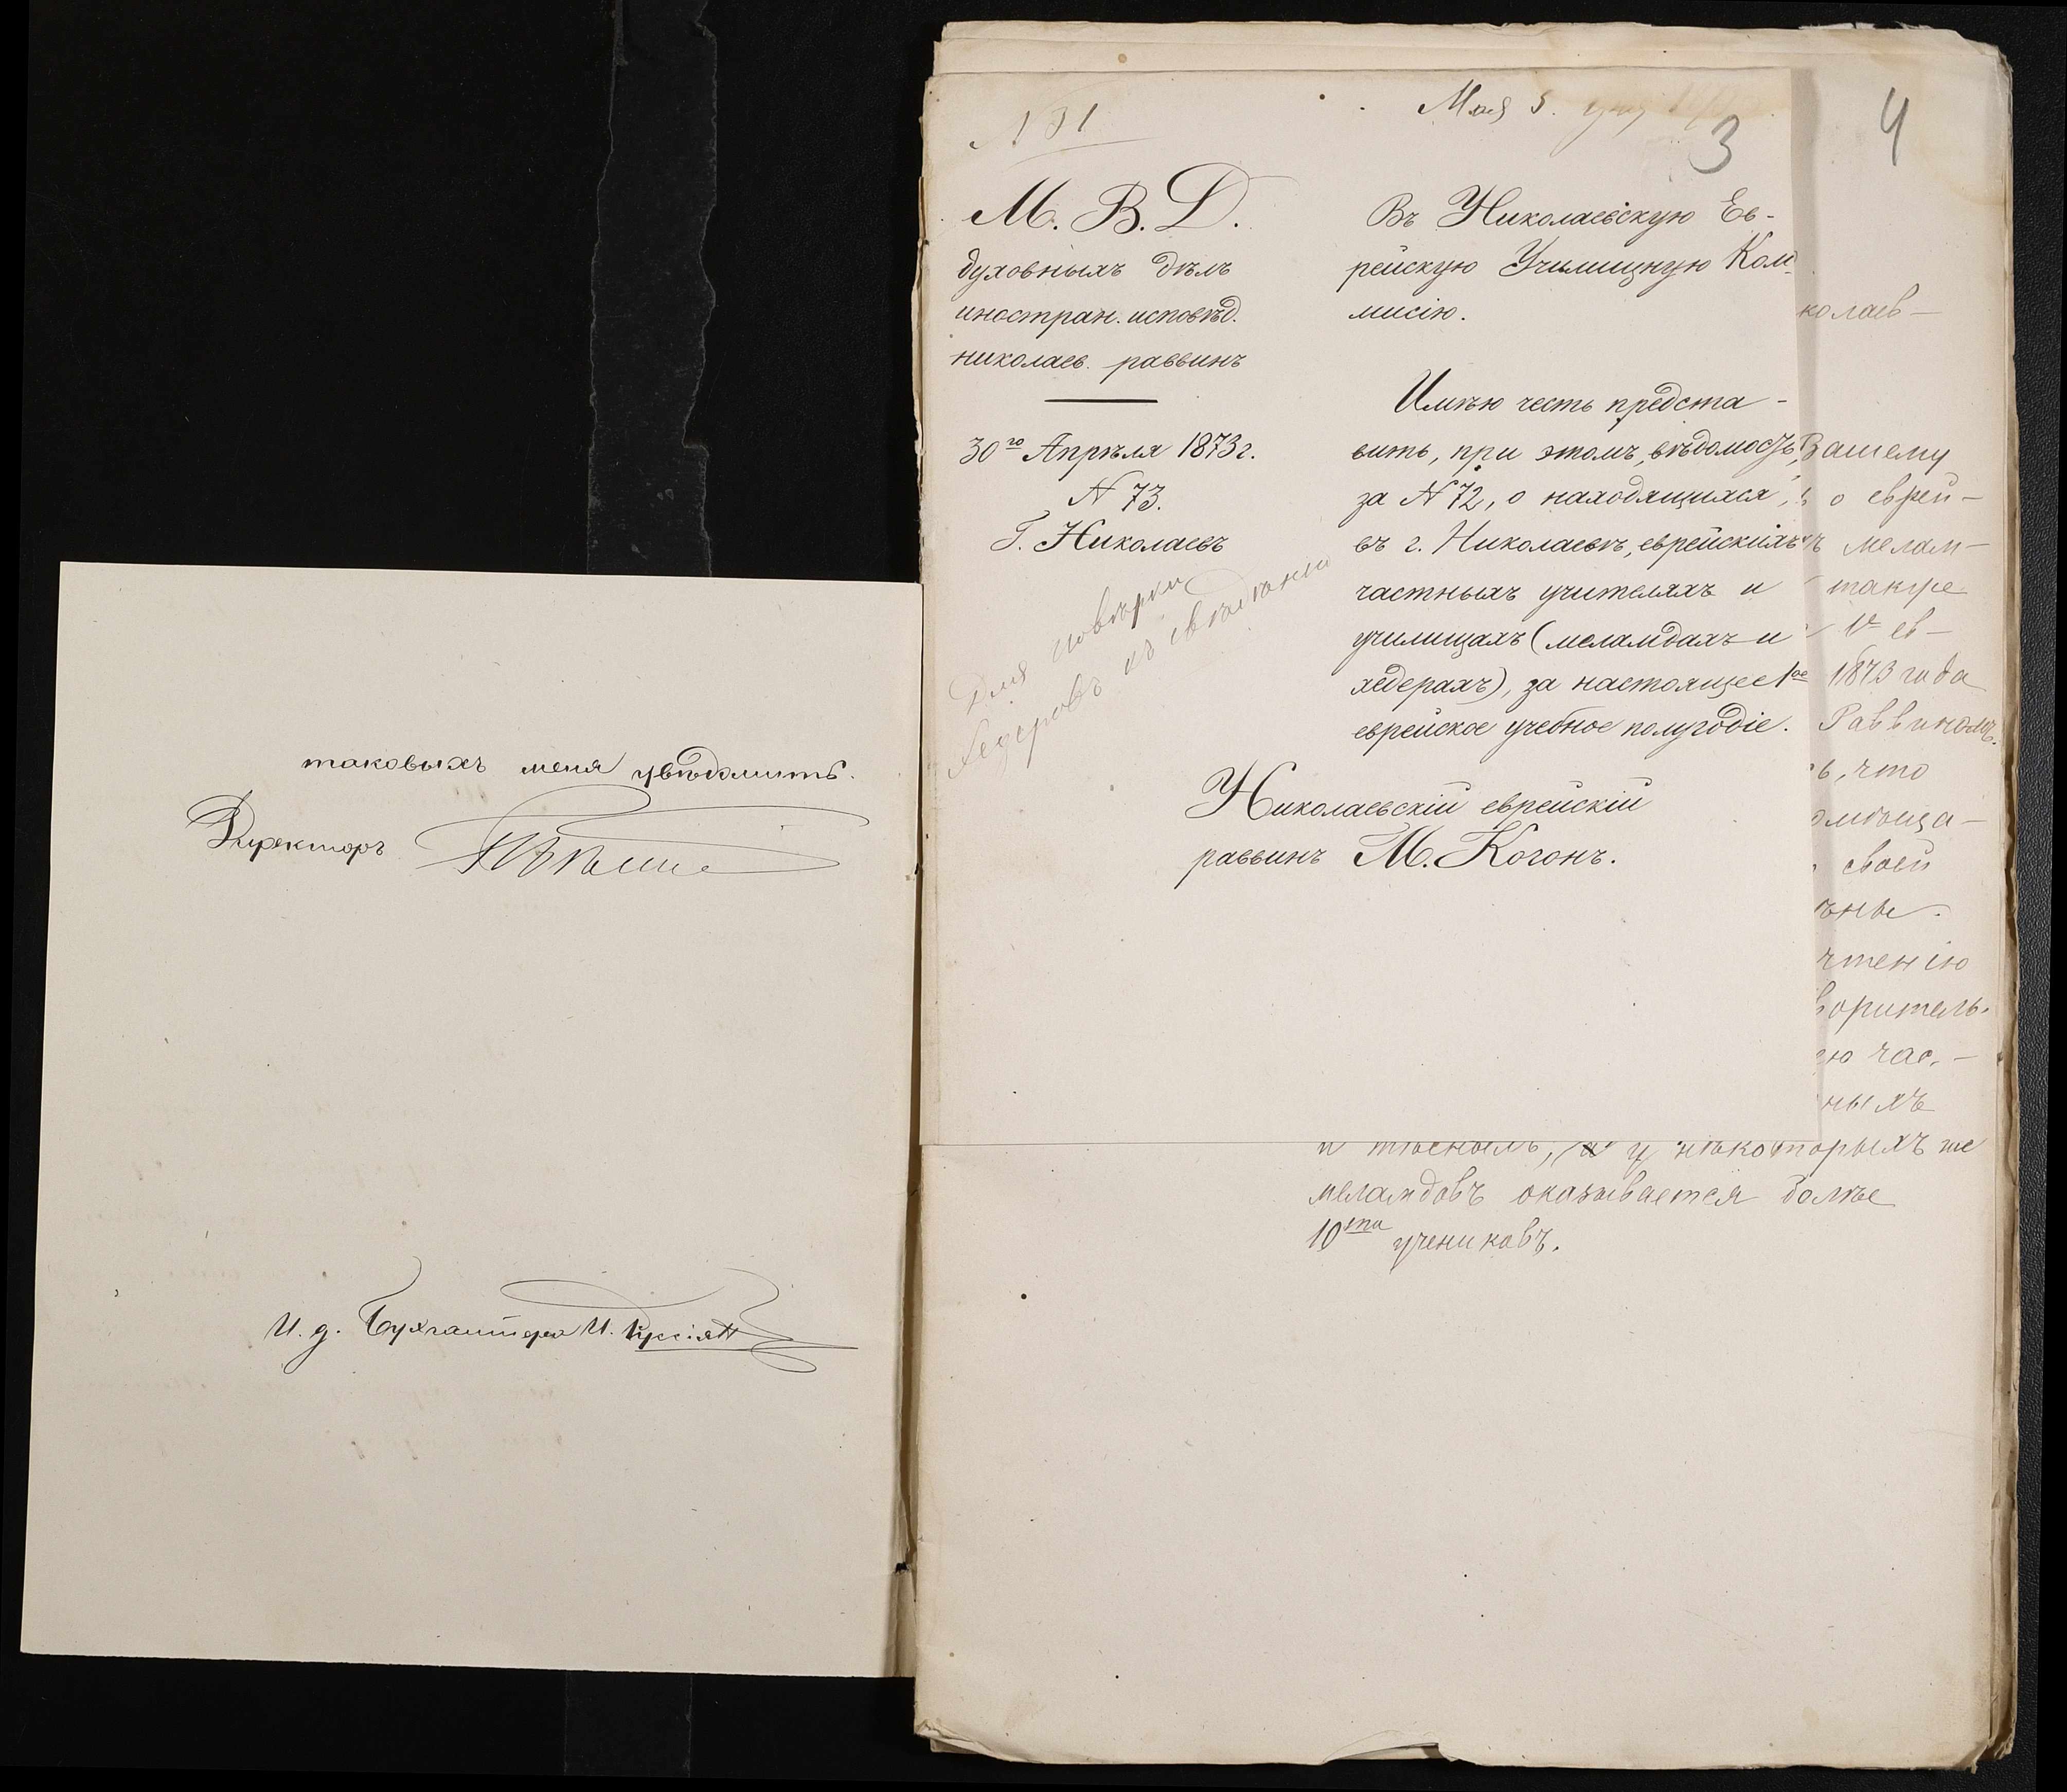 таковыхъ меня увѣдомить.
Директоръ
И. д. Бухгалтера И.
№ 131
Мая 5.
3
М. В. Д.
духовныхъ дѣлъ
иностран. исповѣд.
николаев. раввинъ
30го Апрѣля 1873 г.
№ 73.
Г. Николаевъ
Для повѣрки
хедеровъ къ свѣдѣнію
Въ Николаевскую Ев-
рейскую Училищную Ком-
мисію.
Имѣю честь предста-
вить, при этомъ, вѣдомость,
за № 72, о находящихся,
въ г. Николаевѣ, еврейскихъ
частныхъ учителяхъ и
училищахъ (меламдахъ и
хедерахъ), за настоящее 1ое
еврейское учебное полугодіе.
Николаевскій еврейскій
раввинъ М. Когонъ.
4
колаев-
Вашему
о еврей-
мелам-
также
1е ев-
1873 года
Раввиномъ.
ь, что
своей
чтенію
воритель-
ю час-
ныхъ
и тѣснымъ, у нѣкоторыхъ же
меламдовъ оказывается болѣе
10ти учениковъ.